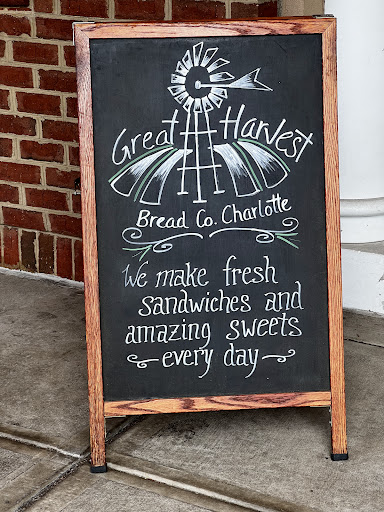 Great Harvest
Bread Co. Charlotte
We make fresh
sandwiches and
amazing sweets
~ every day ~